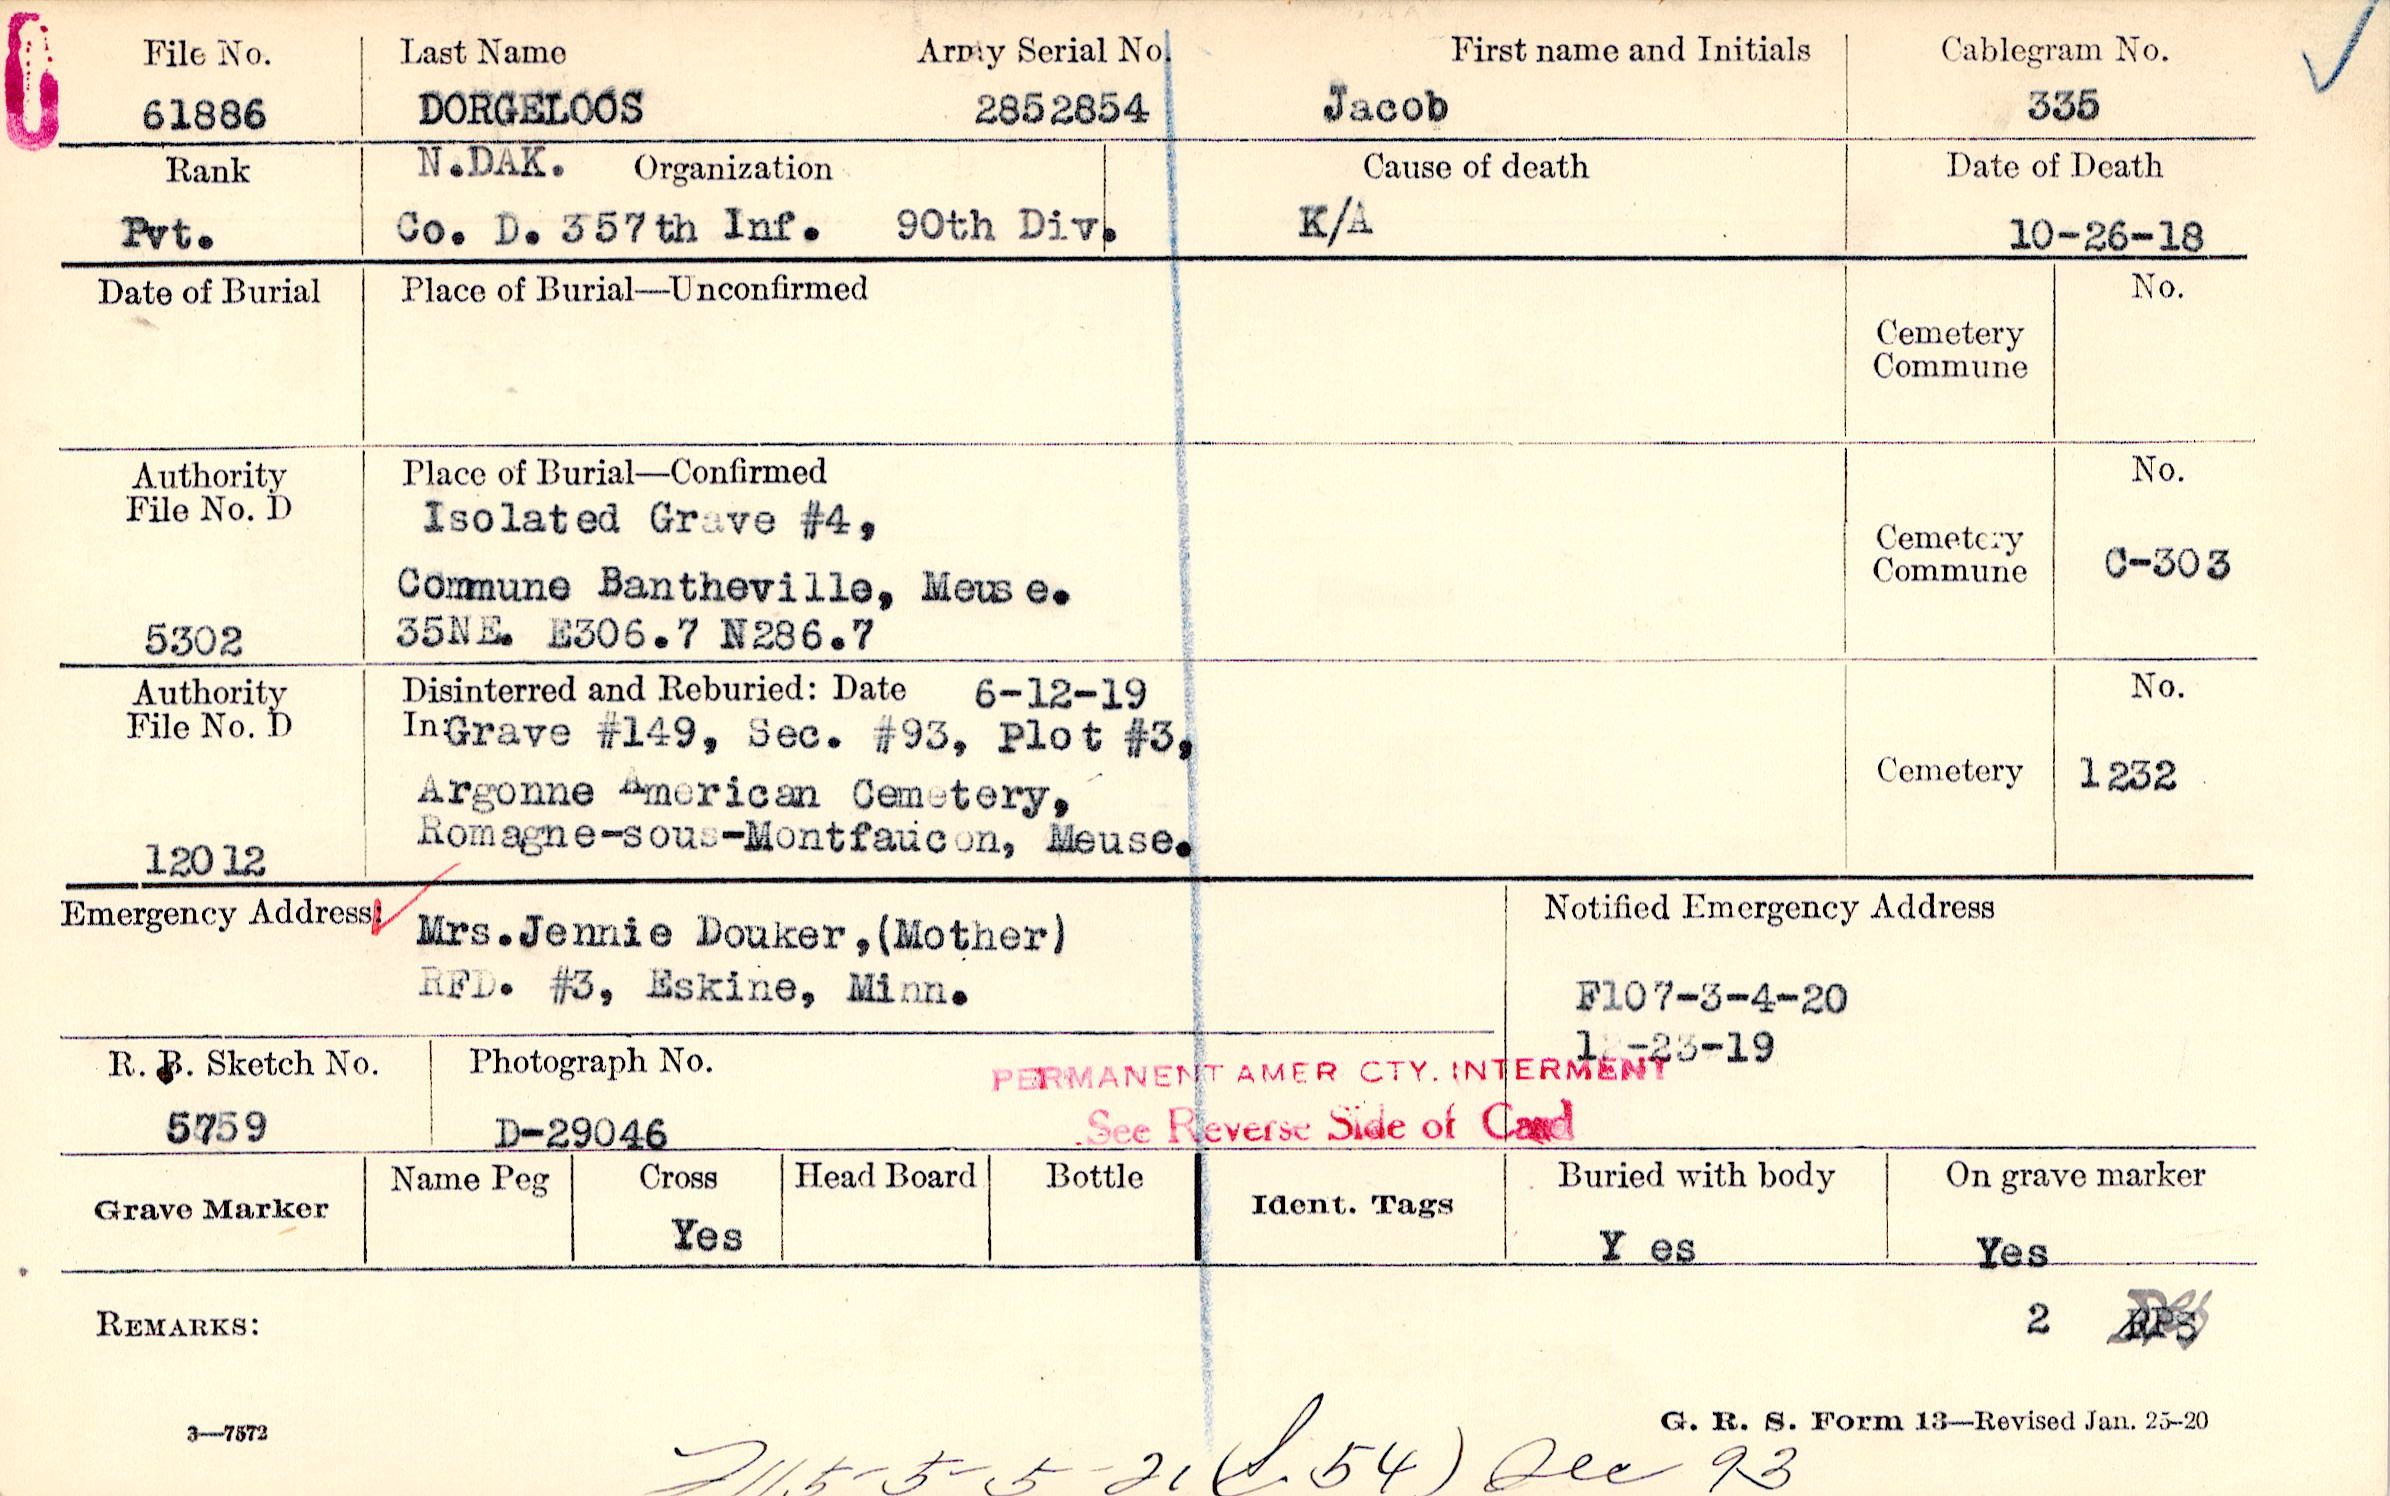 File No. Last Name Army Serial No. First name and Initials Cablegram No.
61886 DORGELOOS 2852854 Jacob 335
Rank N.DAK. Organization Cause of death Date of Death
Pvt. Co. D. 357th Inf. 90th Div. K/A 10-26-18
Date of Burial Place of Burial—Unconfirmed No.
Cemetery
Commune
Authority Place of Burial—Confirmed No.
File No. D Isolated Grave #4,
Cemetery
Commune C-303
Commune Bantheville, Meuse.
5302 35NE. E306.7 N286.7
Authority Disinterred and Reburied: Date 6-12-19 No.
File No. D In Grave #149, Sec. #93, Plot #3,
Cemetery 1232
Argonne American Cemetery,
Romagne-sous-Montfaucon, Meuse.
12012
Emergency Address: Mrs.Jennie Douker,(Mother) Notified Emergency Address
RFD. #3, Eskine, Minn. F107-3-4-20
-23-19
R. B. Sketch No. Photograph No. PERMANENT AMER CTY. INTERMENT
5759 D-29046 See Reverse Side of Card
Grave Marker Name Peg Cross Head Board Bottle Ident. Tags Buried with body On grave marker
Yes Y es Yes
REMARKS: 2
3—7572 G. R. S. Form 13—Revised Jan. 25-20
5-5-21 (S. 54) Sec 93